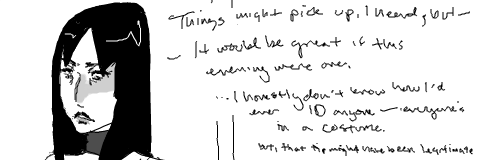 Things might pick up, I need, but—
— It would be great if this
evening were over.
...I honestly don't know how I'd
ever ID anyone — everyone's
in a costume.
but, that tip might have been legitimate